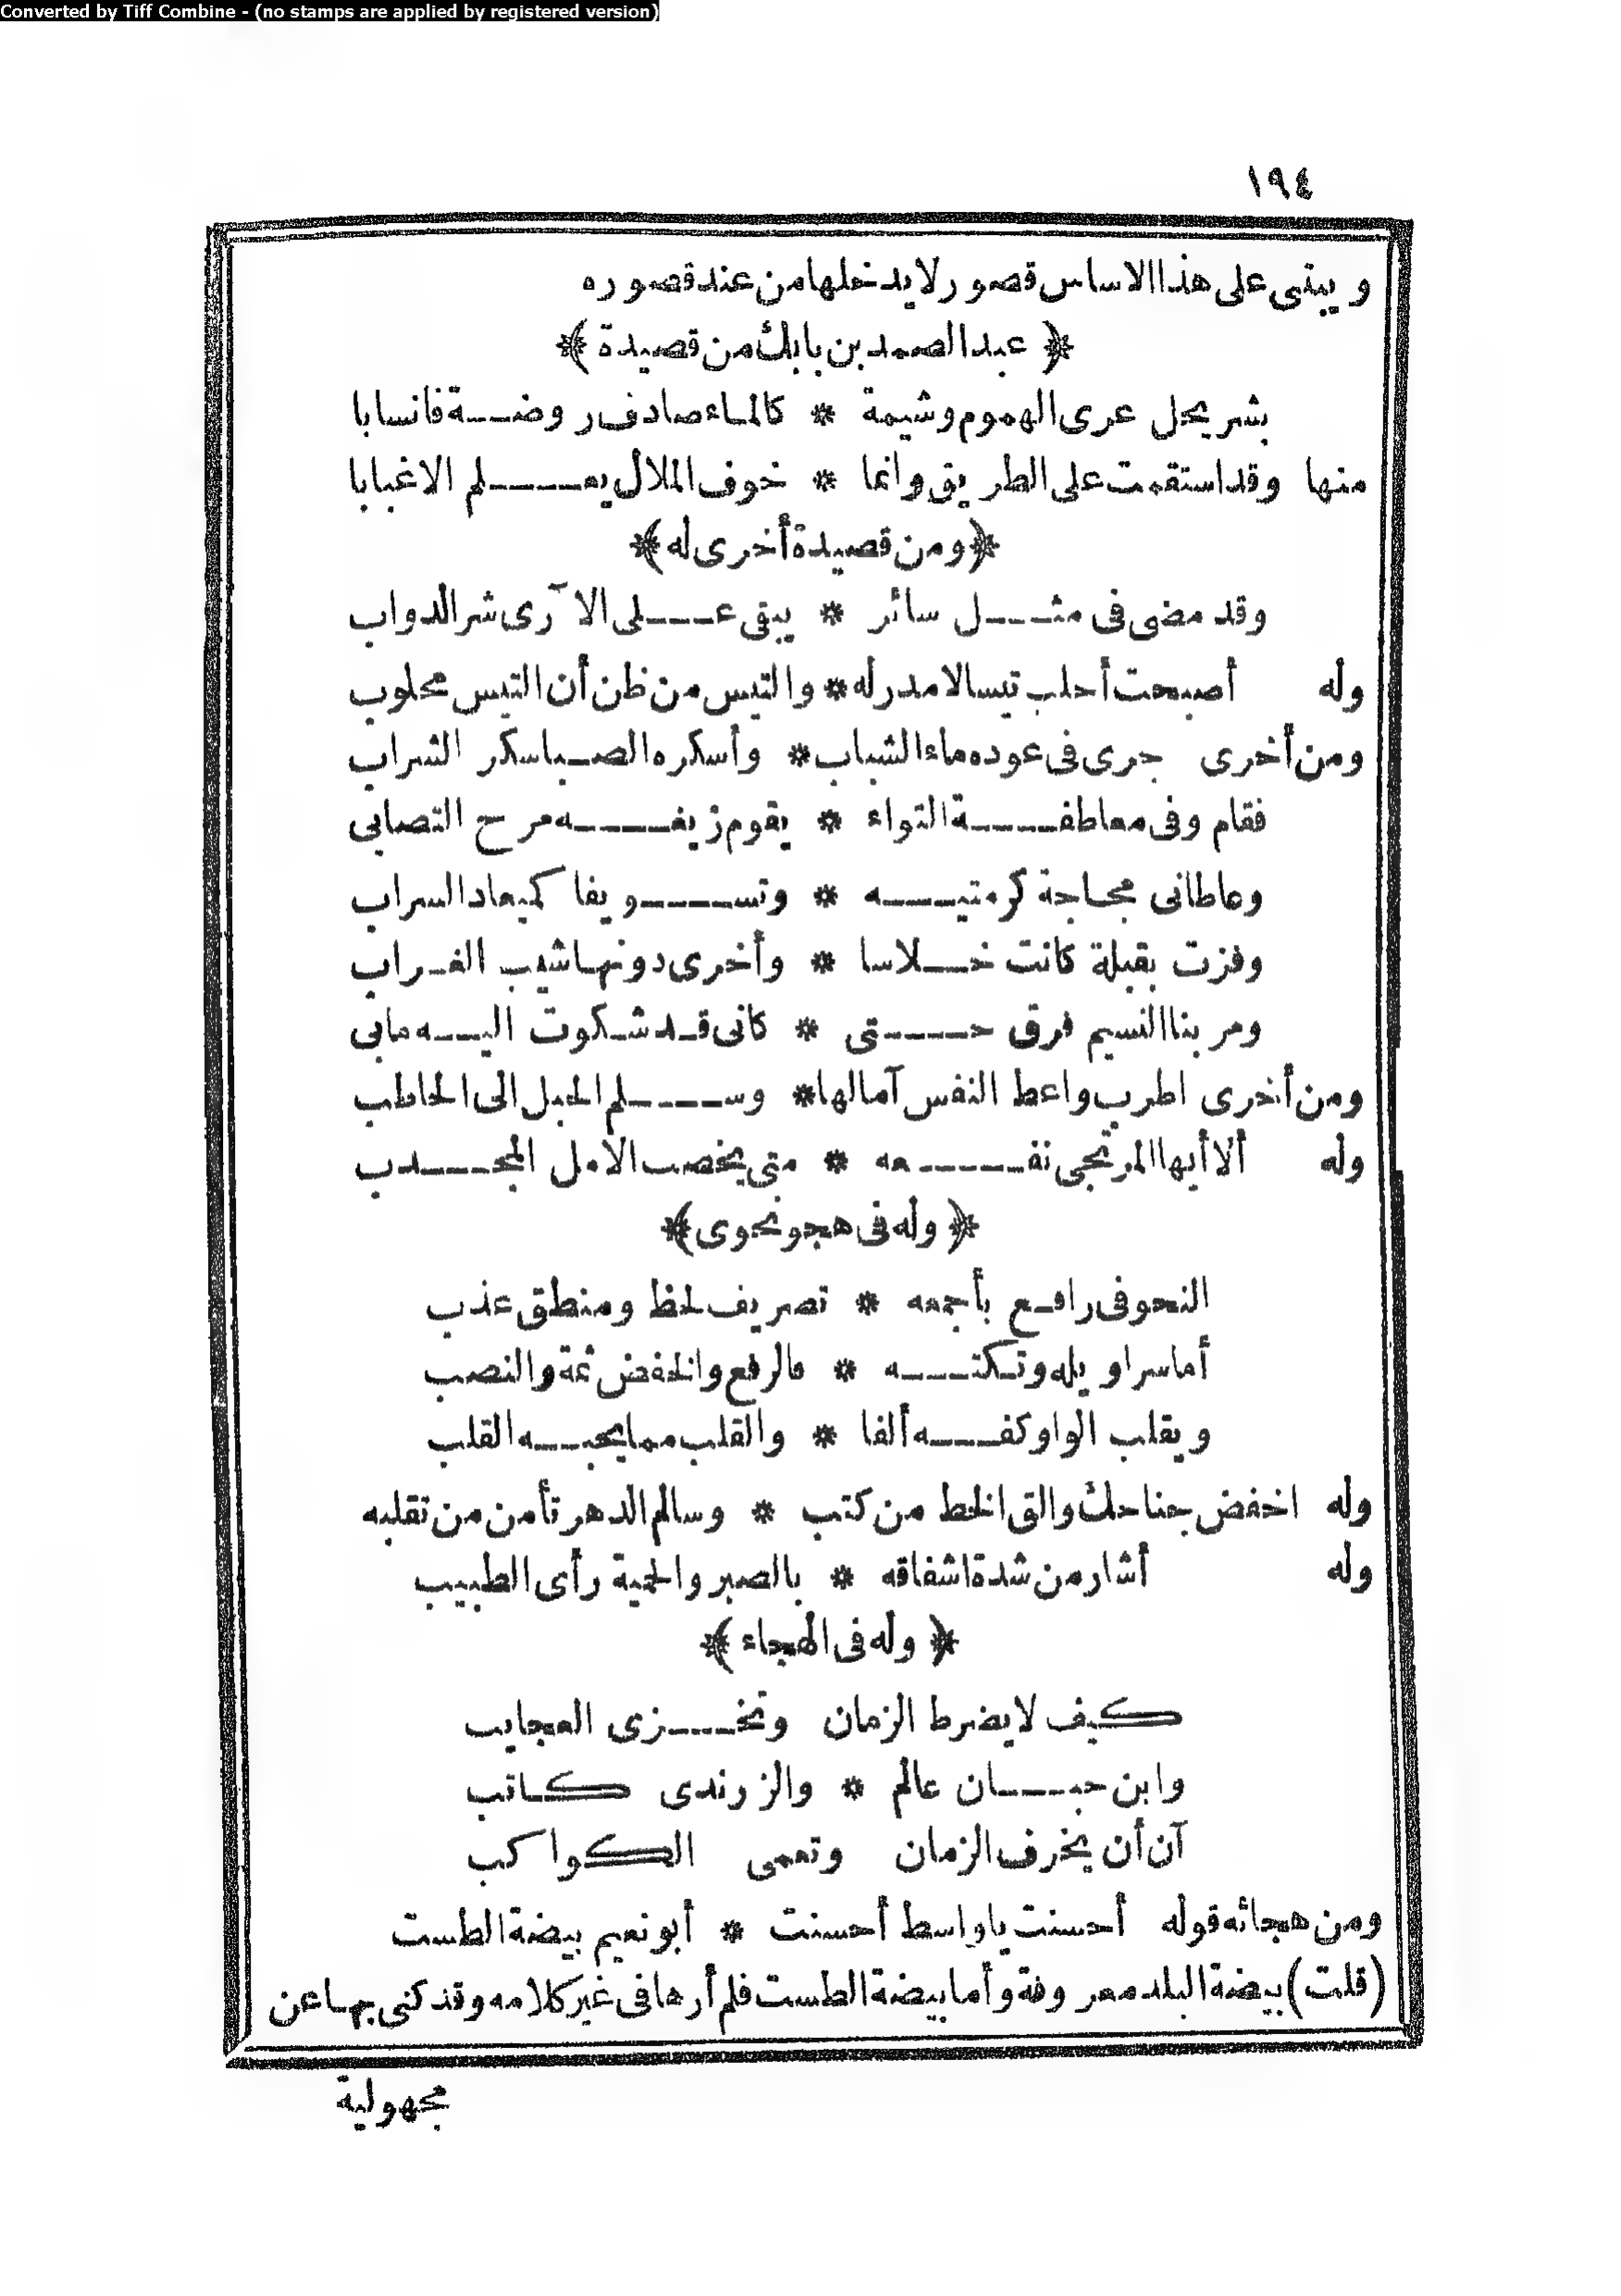 Converted by Tiff Combine - (no stamps are applied by registered version)
١٩٤
ويبنى على هذا الاساس قصور لا يدخلها من عند قصوره
﴿ عبد الصمد بن بابك من قصيدة ﴾
بشر يحل عرى الهموم وشيمة * كالماء صادف روضة فانسابا
منها وقد استقمت على الطريق وانما * خوف الملال يعلم الاغبابا
﴿ومن قصيدة أخرى له﴾
وقد مضى فى مثل سائر * يبقى على الآرى شر الدواب
وله أصبحت أحلب تيسا لا مدر له * والتيس من ظن أن التيس محلوب
ومن أخرى جرى فى عوده ماء الشباب * وأسكره الصبا سكر الشراب
فقام وفى معاطفة التواء * يقوم زيغه مرح التصابى
وعاطانى مجاجة كرمتيه * وتسويفا كميعاد السراب
وفزت بقبلة كانت خلاسا * وأخرى دونها شيب الغراب
ومر بنا النسيم فرق حتى * كانى قد شكوت اليه مابى
ومن أخرى اطرب واعط النفس آمالها * وسلم الحبل الى الحاطب
وله ألا أيها المرتجى نفعه * متى يخصب الامل المجدب
﴿ وله فى هجو نحوى ﴾
النحو فى رافع بأجمعه * تصريف لحظ ومنطق عذب
أما سراويله وتكته * فالرفع والخفض ثمة والنصب
ويقلب الواو كفه ألفا * والقلب مما يحبه القلب
وله اخفض جناحك والق الخط من كتب * وسالم الدهر تأمن من تقلبه
وله أشار من شدة اشفاقه * بالصبر والحمية رأى الطبيب
﴿ وله فى الهجاء ﴾
كيف لا يضرط الزمان وتخزى العجايب
وابن حبان عالم * والزرندى كاتب
آن أن يخرف الزمان وتعمى الكواكب
ومن هجائه قوله أحسنت يا واسط أحسنت * أبو نعيم بيضة الطست
(قلت) بيضة البلد معروفة وأما بيضة الطست فلم أرها فى غير كلامه وقد كنى بها عن
مجهولية